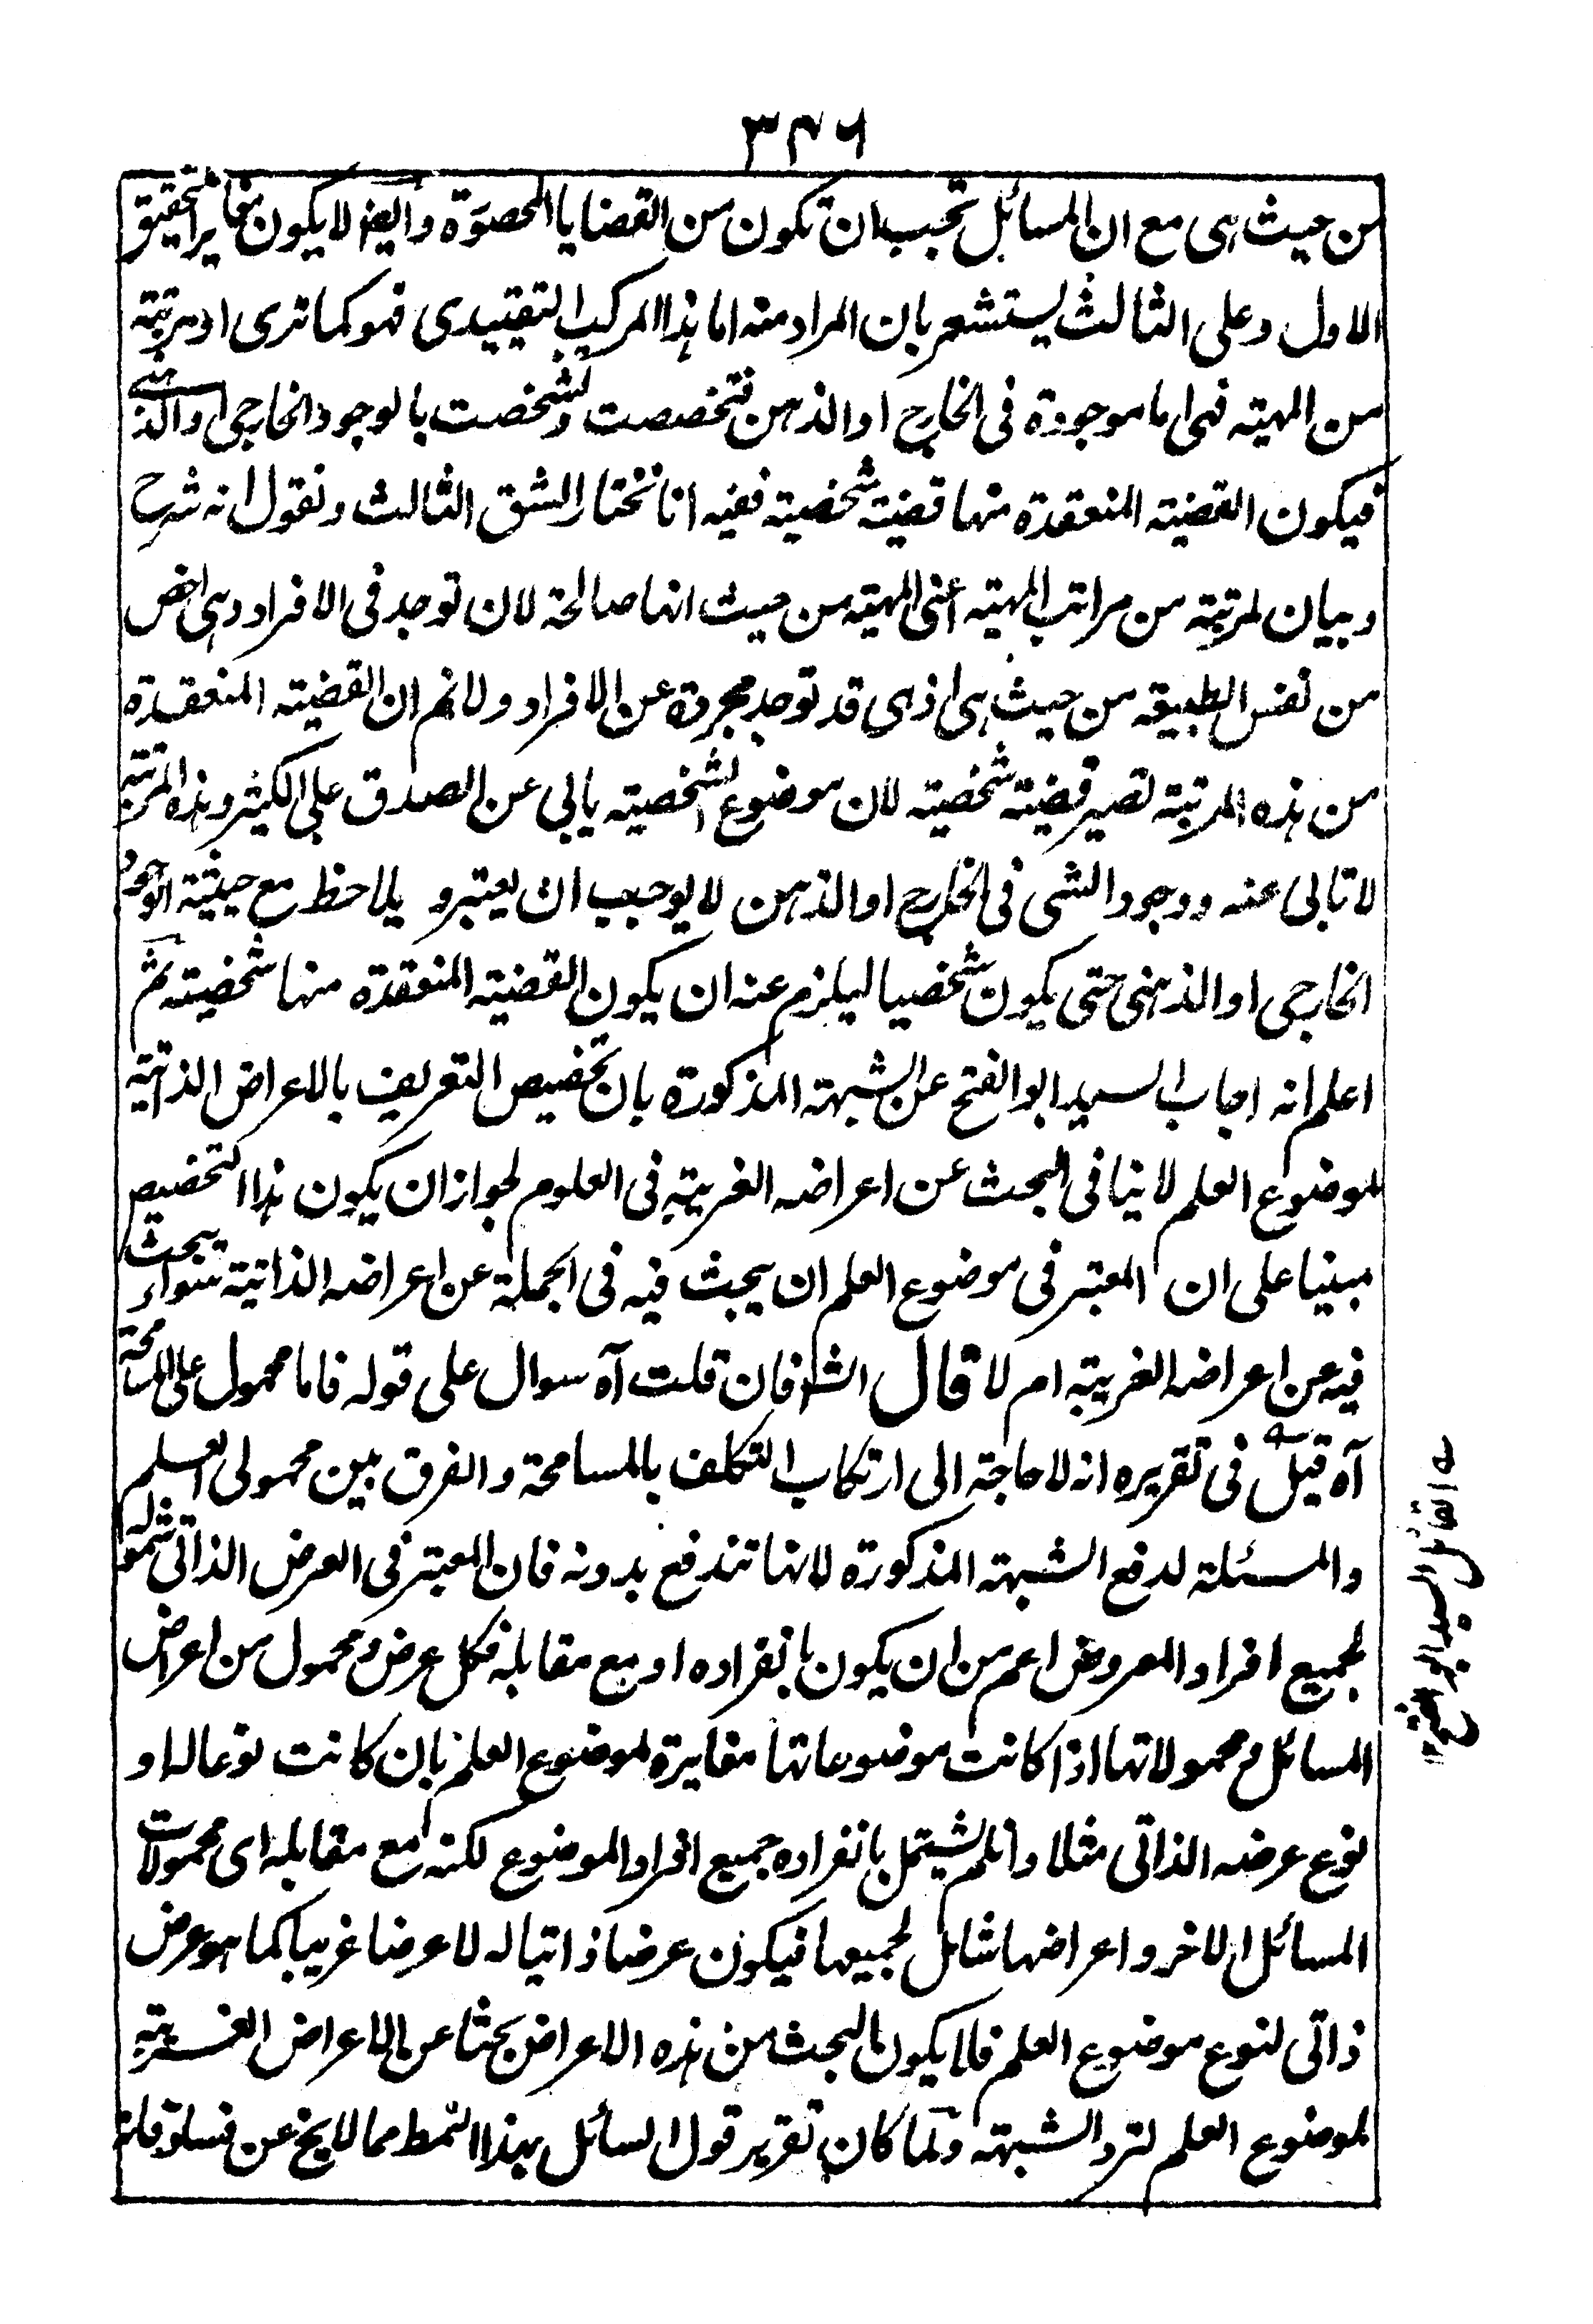 ٣٤٦
من حيث هى مع ان المسائل تجب ان تكون من القضايا المحصورة وايضا لا يكون مغايرا لتحقيق
الاول وعلى الثالث يستشعر بان المراد منه اما هذا المركب التقييدى فهو كما ترى او مرتبة
من المهية فهى اما موجودة فى الخارج او الذهن فتخصصت وتشخصت بالوجود الخارجى او الذهنى
فيكون القضية المنعقدة منها قضية شخصية ففيه انا نختار الشق الثالث ونقول انه شرح
وبيان لمرتبة من مراتب المهية اعنى المهية من حيث انها صالحة لان توجد فى الافراد وهى اخص
من نفس الطبيعة من حيث هى اذ هى قد توجد مجردة عن الافراد ولا نم ان القضية المنعقدة
من هذه المرتبة تصير قضية شخصية لان موضوع الشخصية يابى عن الصدق على الكثير وهذه المرتبة
لا تابى عنه ووجود الشى فى الخارج او الذهن لا يوجب ان يعتبر و يلاحظ مع حيثية الوجود
الخارجى او الذهنى حتى يكون شخصيا ليلزم عنه ان يكون القضية المنعقدة منها شخصية ثم
اعلم انه اجاب السيد ابو الفتح عن الشبهة المذكورة بان تخصيص التعريف بالاعراض الذاتية
لموضوع العلم لا ينافى البحث عن اعراضه الغريبة فى العلوم لجواز ان يكون هذا التخصيص
مبنيا على ان المعتبر فى موضوع العلم ان يبحث فيه فى الجملة عن اعراضه الذاتية سواء يبحث
فيه عن اعراضه الغريبة ام لا قال الشا فان قلت آه سوال على قوله فاما محمول على المسامحة
آه قيل فى تقريره انه لا حاجة الى ارتكاب التكلف بالمسامحة والفرق بين محمولى العلم
والمسئلة لدفع الشبهة المذكورة لانها تندفع بدونه فان المعتبر فى العرض الذاتى شموله
لجميع افراد المعروض اعم من ان يكون بانفراده او مع مقابله فكل عرض ومحمول من اعراض
المسائل ومحمولاتها اذا كانت موضوعاتها مغايرة لموضوع العلم بان كانت نوعا له او
نوع عرضه الذاتى مثلا وان لم يشتمل بانفراده جميع افراد الموضوع لكنه مع مقابله اى محمولات
المسائل الاخر واعراضها شامل لجميعها فيكون عرضا ذاتيا له لا عرضا غريبا كما هو عرض
ذاتى لنوع موضوع العلم فلا يكون البحث من هذه الاعراض بحثا عن الاعراض الغريبة
لموضوع العلم لترد الشبهة ولما كان تقرير قول السائل بهذا النمط مما لا يخ عن
القائل السيد ابو الفتح